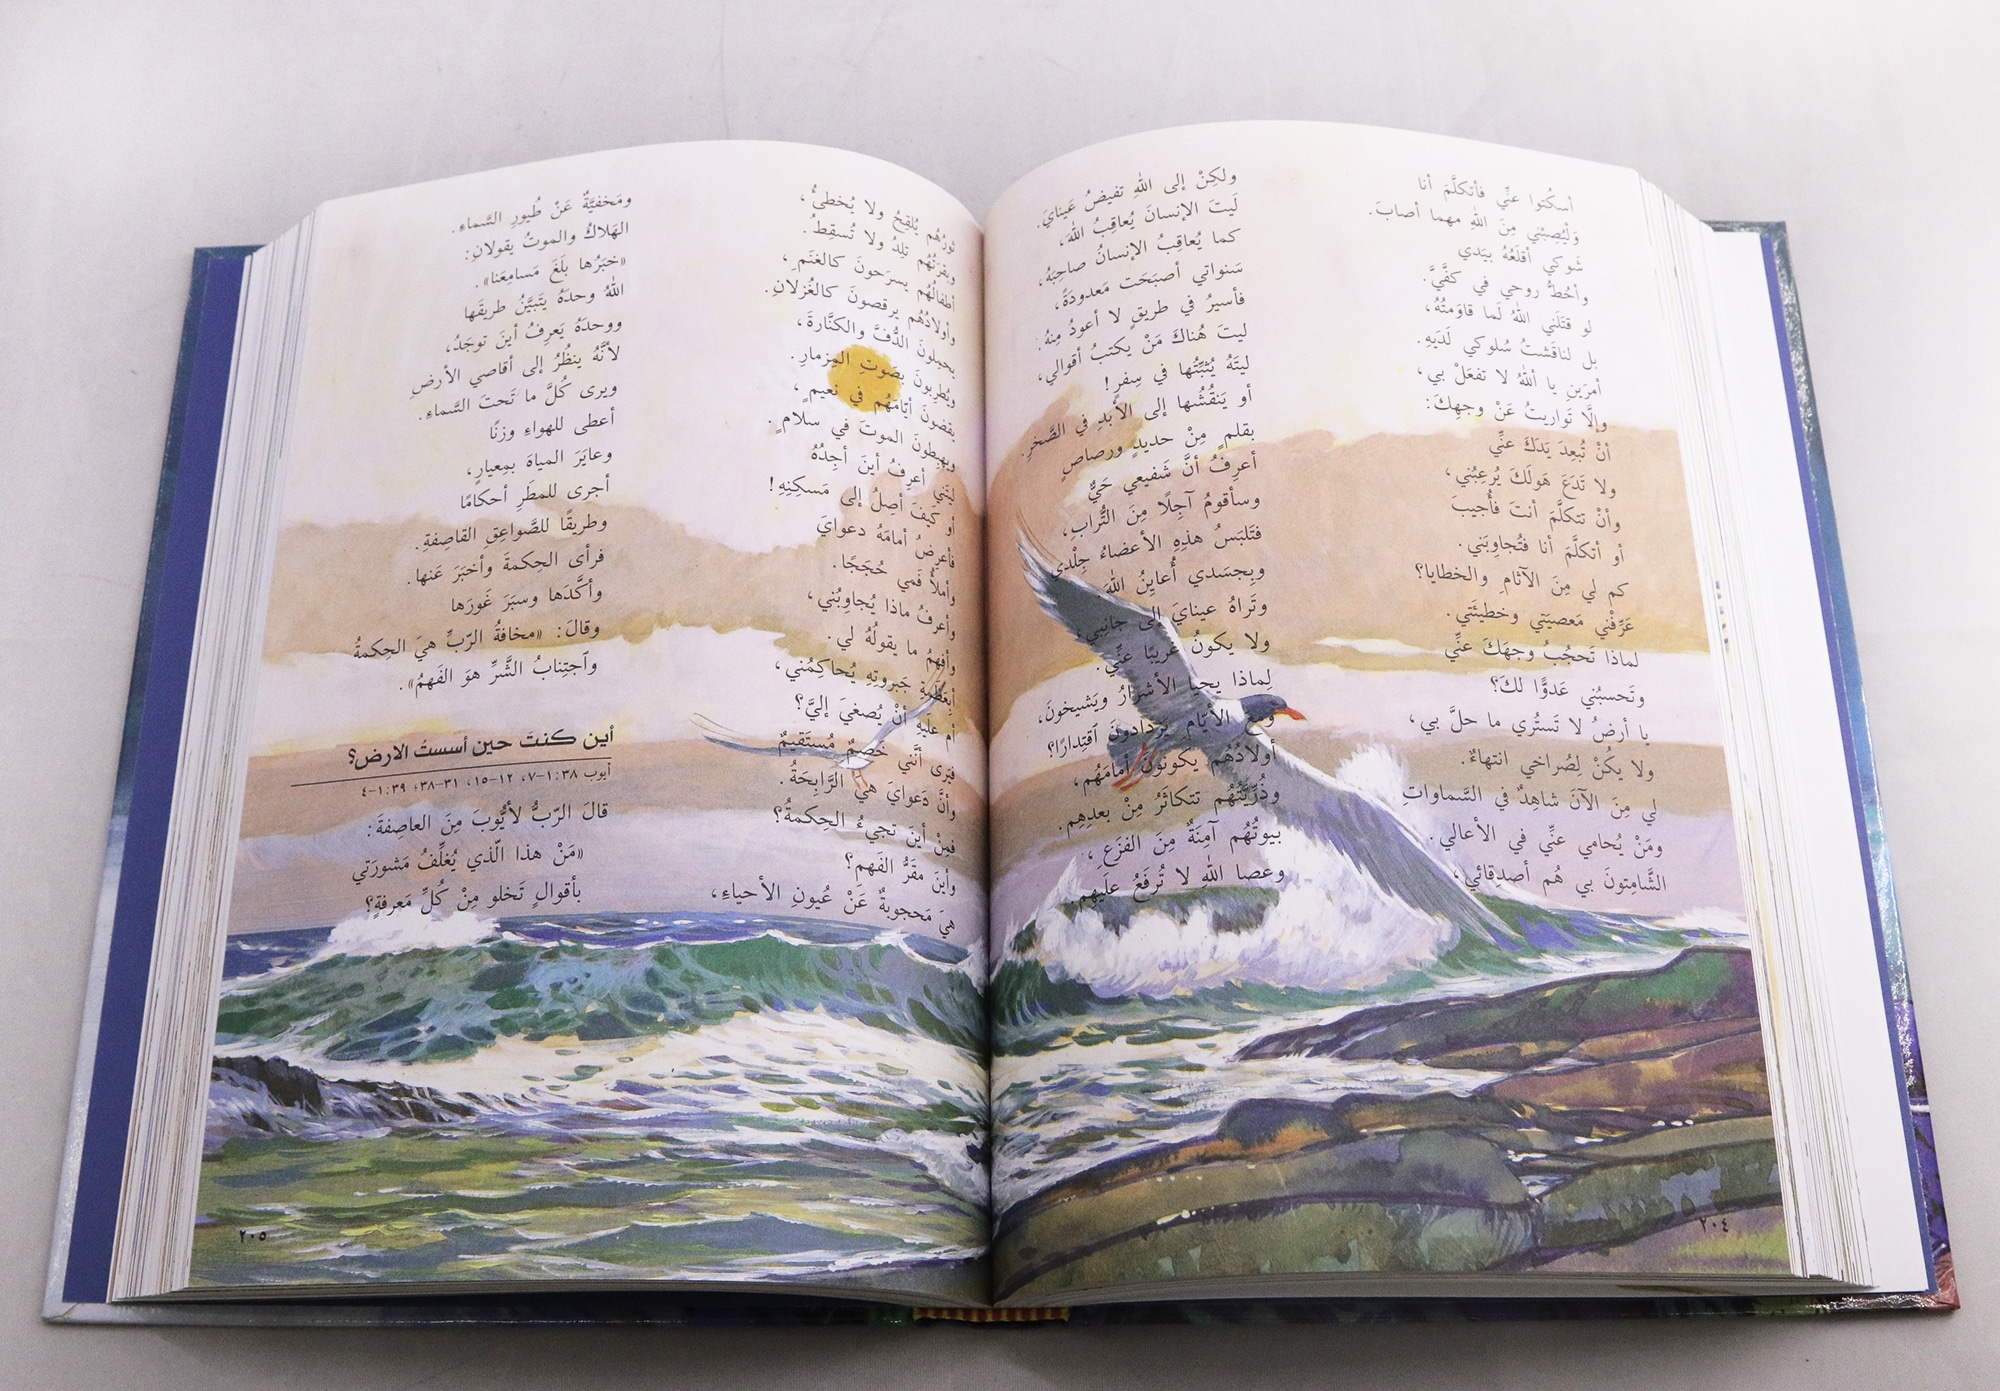 أسكُتوا عنِّي فأتكلَّمَ أنا
وَلْيُصِبْني مِنَ اللهِ مهما أصابَ.
شَوكي أقلَعُهُ بيَدي
وأحُطُّ روحي في كفَّيَّ.
لو قتَلَني اللهُ لَما قاوَمتُهُ،
بل لناقَشتُ سُلوكي لَدَيهِ.
أمرَينِ يا أللهُ لا تفعَلْ بي،
وإلَّا تَوارَيتُ عَنْ وجهِكَ:
أنْ تُبعِدَ يَدَكَ عنِّي
ولا تَدَعَ هَولَكَ يُرعِبُني،
وأنْ تتكلَّمَ أنتَ فأُجيبَ
أو أتكلَّمَ أنا فتُجاوِبَني.
كم لي مِنَ الآثامِ والخطايا؟
عَرِّفْني مَعصيَتي وخطيئَتي.
لماذا تَحجُبُ وجهَكَ عنِّي
وتَحسبُني عَدوًّا لكَ؟
يا أرضُ لا تَستُري ما حلَّ بي،
ولا يكُنْ لِصُراخي انتهاءٌ.
لي مِنَ الآنَ شاهِدٌ في السَّماواتِ
ومَنْ يُحامي عنِّي في الأعالي.
الشَّامِتونَ بي هُم أصدِقائي،
ولكِنْ إلى اللهِ تفيضُ عَينايَ.
لَيتَ الإنسانَ يُعاقِبُ اللهَ،
كما يُعاقِبُ الإنسانُ صاحِبَهُ،
سَنواتي أصبَحَت مَعدودَةً،
فأسيرُ في طريقٍ لا أعودُ مِنهُ.
ليتَ هُناكَ مَنْ يكتبُ أقوالي،
ليتَهُ يُثبِّتُها في سِفرٍ!
أو يَنقُشُها إلى الأبدِ في الصَّخرِ.
بقلمٍ مِنْ حديدٍ ورصاصٍ
أعرِفُ أنَّ شَفيعي حَيٌّ
وسأقومُ آجِلًا مِنَ التُّرابِ،
فتَلبَسُ هذِهِ الأعضاءُ جِلْدي
وبِجسَدي أُعايِنُ اللهَ
وتَراهُ عينايَ إلى جانِبي.
ولا يكونُ غريبًا عنِّي.
لِماذا يحيا الأشرارُ ويَشيخونَ،
ومعَ الأيَّامِ يزدادونَ ٱقتِدارًا؟
أولادُهُم يكونونَ أمامَهُم،
وذُرِّيَّتُهُم تتكاثَرُ مِنْ بعدِهِم.
بيوتُهُم آمِنَةٌ مِنَ الفزَعِ،
وعصا اللهِ لا تُرفَعُ علَيهِم.
٢٠٤
ثورُهُم يُلقِحُ ولا يُخطئُ،
وبقرَتُهُم تلِدُ ولا تُسقِطُ.
أطفالُهُم يسرَحونَ كالغنَمِ،
وأولادُهُم يرقصونَ كالغُزلانِ.
يحمِلونَ الدُّفَّ والكنَّارةَ،
ويُطرِبونَ بصَوتِ المِزمارِ.
يقضونَ أيَّامَهُم في نَعيمٍ،
ويهبِطونَ الموتَ في سلامٍ.
ليتَني أعرِفُ أينَ أجِدُهُ
أو كيفَ أصِلُ إلى مَسكِنِهِ!
فأعرِضُ أمامَهُ دعوايَ
وأملأُ فَمي حُجَجًا.
وأعرفُ ماذا يُجاوِبُني،
وأفهمُ ما يقولُهُ لي.
أبِعَظمةِ جَبروتِهِ يُحاكِمُني،
أم علَيهِ أنْ يُصغيَ إليَّ؟
فيَرى أنَّني خَصمٌ مُستَقيمٌ
وأنَّ دَعوايَ هيَ الرَّابِحَةُ.
فمِنْ أينَ تجيءُ الحِكمةُ؟
وأينَ مَقَرُّ الفَهمِ؟
هيَ مَحجوبةٌ عَنْ عُيونِ الأحياءِ،
ومَخفيَّةٌ عَنْ طُيورِ السَّماءِ.
الهَلاكُ والموتُ يقولانِ:
«خبَرُها بلَغَ مَسامِعَنا».
اللهُ وحدَهُ يَتبَيَّنُ طريقَها
ووحدَهُ يَعرِفُ أينَ توجَدُ،
لأنَّهُ ينظُرُ إلى أقاصي الأرضِ
ويرى كُلَّ ما تَحتَ السَّماءِ.
أعطى للهواءِ وزنًا
وعايَرَ المياهَ بمِعيارٍ،
أجرى للمطَرِ أحكامًا
وطريقًا للصَّواعِقِ القاصِفةِ.
فرأى الحِكمةَ وأخبَرَ عَنها.
وأكَّدَها وسبَرَ غَورَها
وقالَ: «مخافةُ الرّبِّ هيَ الحِكمةُ
وٱجتِنابُ الشَّرِّ هوَ الفَهمُ».
أين كنتَ حين أسستُ الارض؟
أيوب ٣٨:١-٧، ١٢-١٥، ٣١-٣٨؛ ٣٩:١-٤
قالَ الرّبُّ لأيُّوبَ مِنَ العاصِفةَ:
«مَنْ هذا الّذي يُغلِّفُ مَشورَتي
بأقوالٍ تَخلو مِنْ كُلِّ مَعرفةٍ؟
٢٠٥